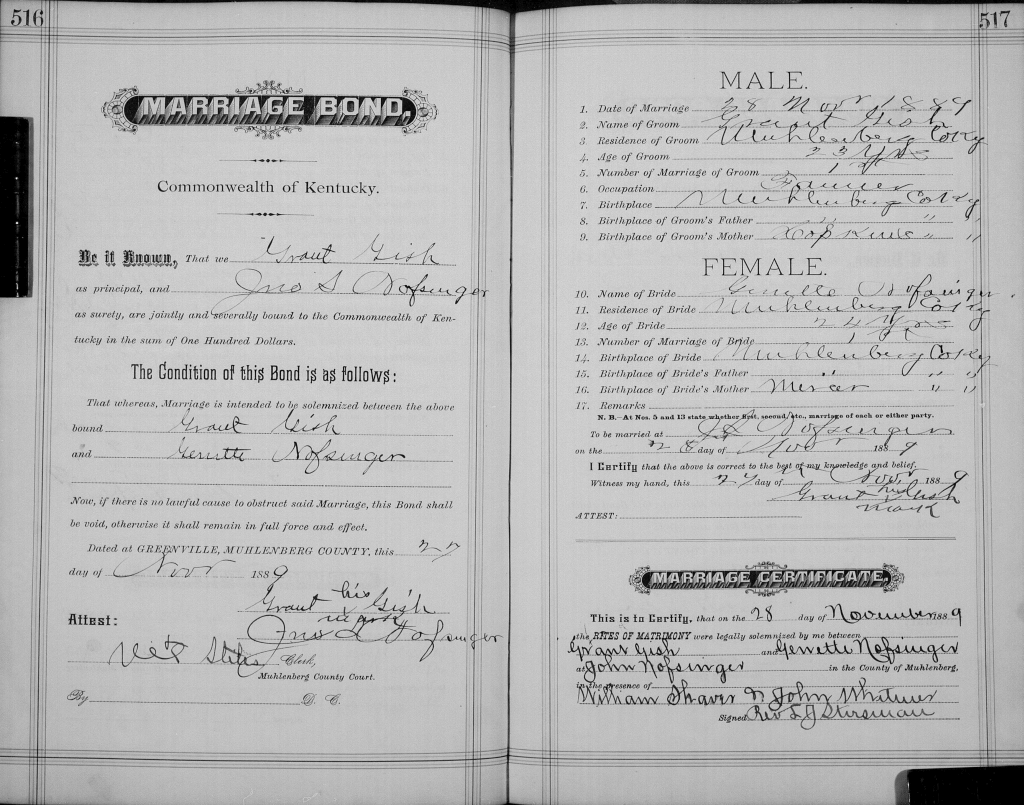 516
MARRIAGE BOND,
Commonwealth of Kentucky.
Be it Known, That we Grant Gish
as principal, and Jno S Nofsinger
as surety, are jointly and severally bound to the Commonwealth of Ken-
tucky in the sum of One Hundred Dollars.
The Condition of this Bond is as follows:
That whereas, Marriage is intended to be solemnized between the above
bound Grant Gish
and Gerrette Nofsinger
Now, if there is no lawful cause to obstruct said Marriage, this Bond shall
be void, otherwise it shall remain in full force and effect.
Dated at GREENVILLE, MUHLENBERG COUNTY, this 27
day of Novr 1889
Grant his Gish
x mark
Attest: Jno S Nofsinger
Stiles Clerk,
Muhlenberg County Court.
By D. C.
517
MALE.
1. Date of Marriage 28 Novr 1889
2. Name of Groom Grant Gish
3. Residence of Groom Muhlenberg Co Ky
4. Age of Groom 23 Yrs
5. Number of Marriage of Groom 1st
6. Occupation Farmer
7. Birthplace Muhlenberg Co Ky
8. Birthplace of Groom's Father " " "
9. Birthplace of Groom's Mother Hopkins " "
FEMALE.
10. Name of Bride Gerrette Nofsinger
11. Residence of Bride Muhlenberg Co Ky
12. Age of Bride 24 Yrs
13. Number of Marriage of Bride 1st
14. Birthplace of Bride Muhlenberg Co Ky
15. Birthplace of Bride's Father " " "
16. Birthplace of Bride's Mother Mercer " "
17. Remarks
N. B.—At Nos. 5 and 13 state whether first, second, etc., marriage of each or either party.
To be married at Nofsinger
on the 28 day of Novr 1889
I Certify that the above is correct to the best of my knowledge and belief.
Witness my hand, this 27 day of Novr 1889
Grant his x Gish
mark
ATTEST:
MARRIAGE CERTIFICATE.
This is to Certify, that on the 28 day of November 1889
the RITES OF MATRIMONY were legally solemnized by me between
Grant Gish and Gerrette Nofsinger
at John Nofsinger in the County of Muhlenberg,
in the presence of
William Shaver & John Whitmer
Signed Rev L J Stirsman